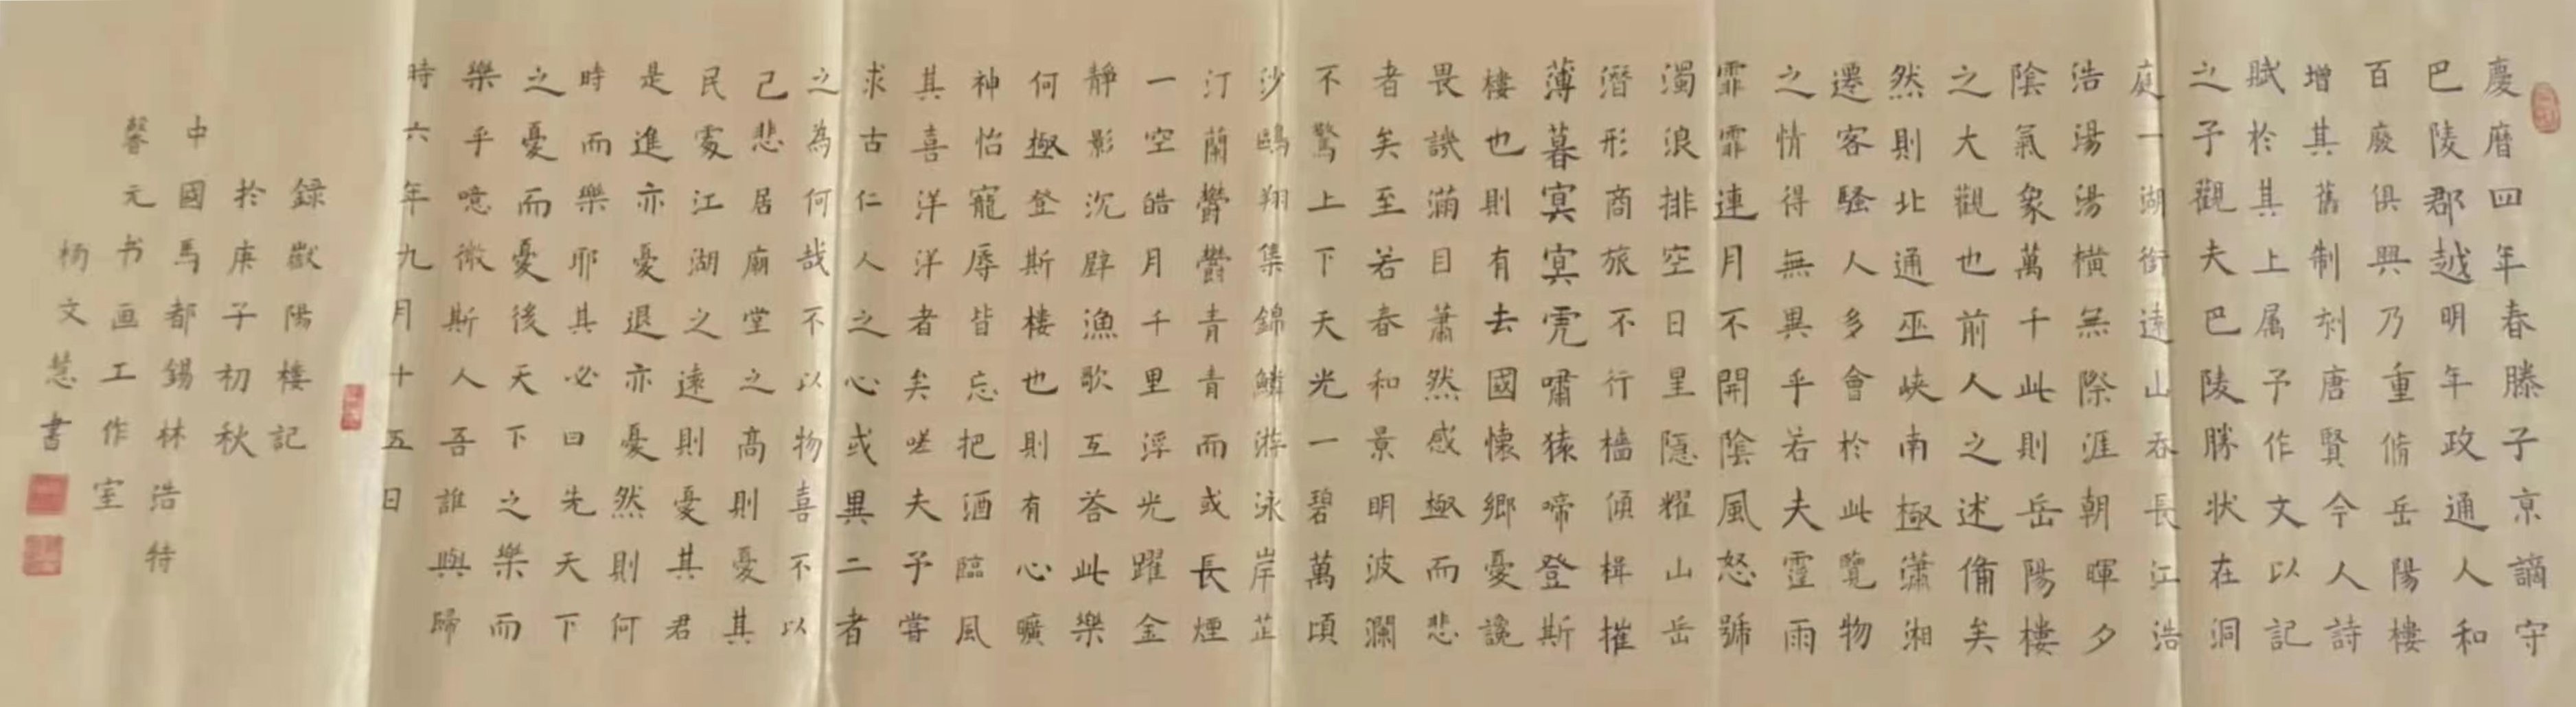 慶曆四年春滕子京謫守
巴陵郡越明年政通人和
百廢俱興乃重脩岳陽樓
增其舊制刻唐賢今人詩
賦於其上属予作文以記
之予觀夫巴陵勝状在洞
庭一湖銜遠山吞長江浩
浩湯湯橫無際涯朝暉夕
陰氣象萬千此則岳陽樓
之大觀也前人之述備矣
然則北通巫峡南極瀟湘
遷客騷人多會於此覽物
之情得無異乎若夫霪雨
霏霏連月不開陰風怒號
濁浪排空日星隱耀山岳
潛形商旅不行檣傾楫摧
薄暮冥冥虎嘯猿啼登斯
樓也則有去國懷鄉憂讒
畏譏滿目蕭然感極而悲
者矣至若春和景明波瀾
不驚上下天光一碧萬頃
沙鷗翔集錦鱗游泳岸芷
汀蘭鬱鬱青青而或長煙
一空皓月千里浮光躍金
靜影沉璧漁歌互荅此樂
何極登斯樓也則有心曠
神怡寵辱皆忘把酒臨風
其喜洋洋者矣嗟夫予嘗
求古仁人之心或異二者
之為何哉不以物喜不以
己悲居廟堂之高則憂其
民處江湖之遠則憂其君
是進亦憂退亦憂然則何
時而樂耶其必曰先天下
之憂而憂後天下之樂而
樂乎噫微斯人吾誰與歸
時六年九月十五日
録嶽陽樓記
於庚子初秋
中國馬都錫林浩特
馨元书画工作室
杨文慧書